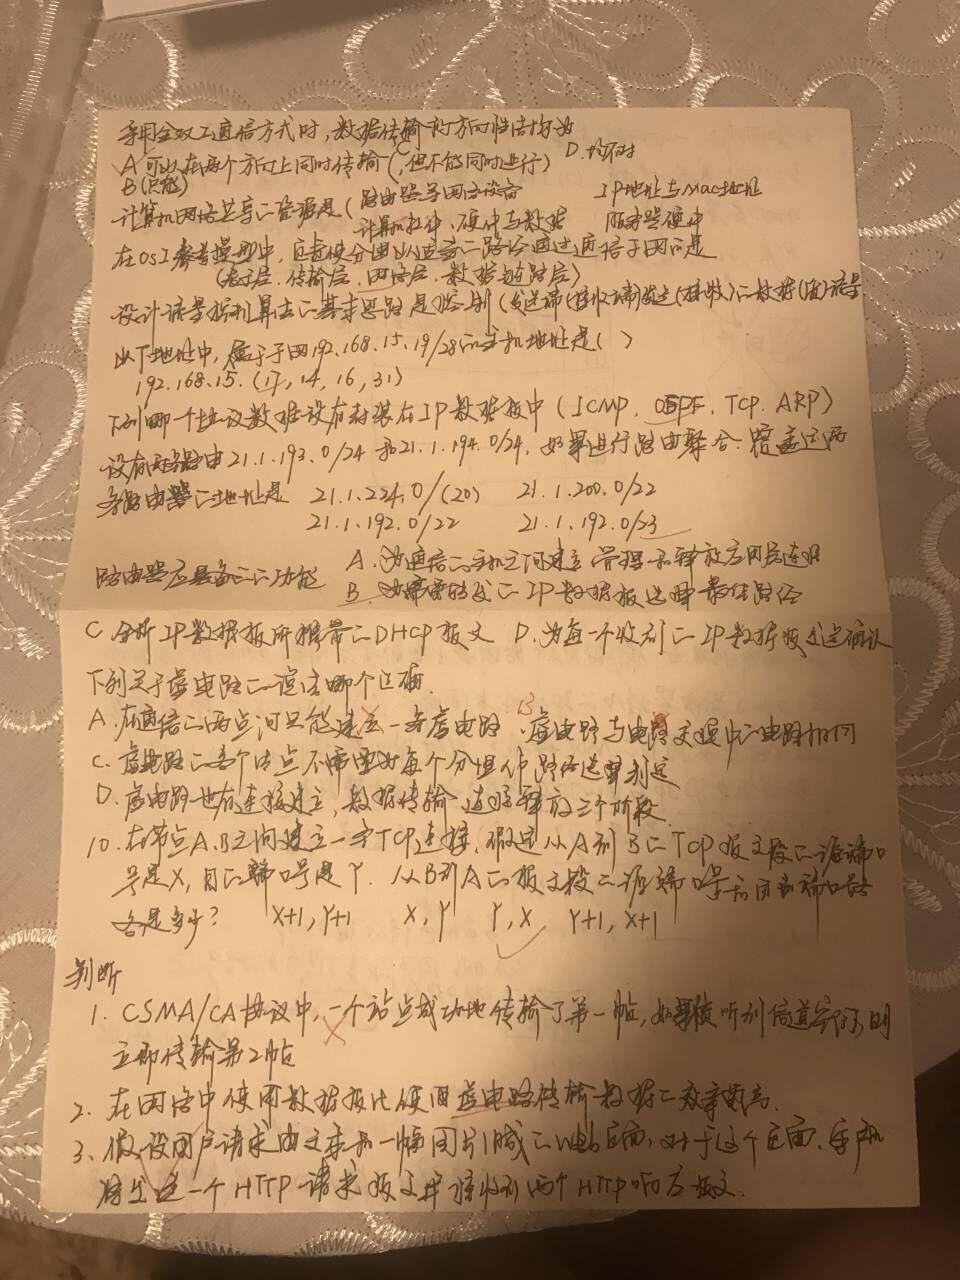 采用全双工通信方式时，数据传输的方向性结构为
A 可以在两个方向上同时传输 C(，但不能同时进行) D.均不对
B(只能)
计算机网络共享的资源是( 路由器等网络设备 IP地址与Mac地址
计算机软件、硬件与数据 服务器硬件
在OSI参考模型中，路由选择 通过通信子网的是
(表示层、传输层、网络层、数据链路层)
设计流量控制算法的基本思路是控制(发送端(接收端)发送(接收)的数据 流量
以下地址中，属于子网192.168.15.19/28的主机地址是( )
192.168.15.(17, 14, 16, 31)
下列哪一个协议数据没有封装在IP数据报中(ICMP、OSPF、TCP、ARP)
设有两条路由21.1.193.0/24和21.1.194.0/24，如果进行路由聚合、覆盖这两
条路由器的地址是 21.1.224.0/(20) 21.1.200.0/22
21.1.192.0/22 21.1.192.0/23
路由器应具备的的功能 A.为通信的主机之间建立、管理和释放应用层连接
B.为需要转发的IP数据报选择最佳路径
C 分析IP数据报所携带的DHCP报文 D.为每一个收到的IP数据报发送确认
下列关于虚电路的说法哪个正确.
A.在通信的两点间只能建立一条虚电路 B 虚电路与电路交换中的电路相同
C.虚电路的各个结点不需要为每个分组作路径选择判定
D.虚电路也有连接建立、数据传输、连接释放三个阶段.
10.在节点A、B之间建立一个TCP连接、假定从A到B的TCP报文段的源端口
号是X，目的端口号是Y.从B到A的报文段的源端口号和目的端口号
各是多少? X+1, Y+1 X, Y Y, X Y+1, X+1
判断
1. CSMA/CA协议中，一个站点成功地传输了第一帧，如果侦听到信道空闲，则
立即传输第2帧
2. 在网络中使用数据报比使用虚电路传输数据的效率更高.
3. 假设用户请求由文本和一幅图片组成的web页面，对于这个页面、客户机
将发送一个HTTP请求报文并接收到两个HTTP响应报文.